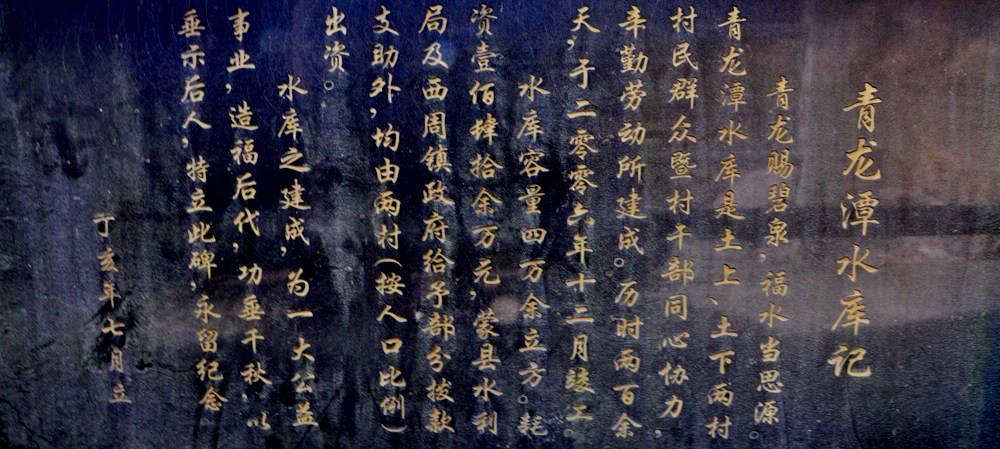 青龙潭水库记
青龙赐碧泉，福水当思源。
青龙潭水库是土上、土下两村
村民群众暨村干部同心协力，
辛勤劳动所建成。历时两百余
天，于二零零六年十二月竣工。
水库容量四万余立方。耗
资壹佰肆拾余万元，蒙县水利
局及西周镇政府给予部分拨款
支助外，均由两村（按人口比例）
出资。
水库之建成，为一大公益
事业，造福后代，功垂千秋，以
垂示后人，特立此碑，永留纪念
丁亥年七月立